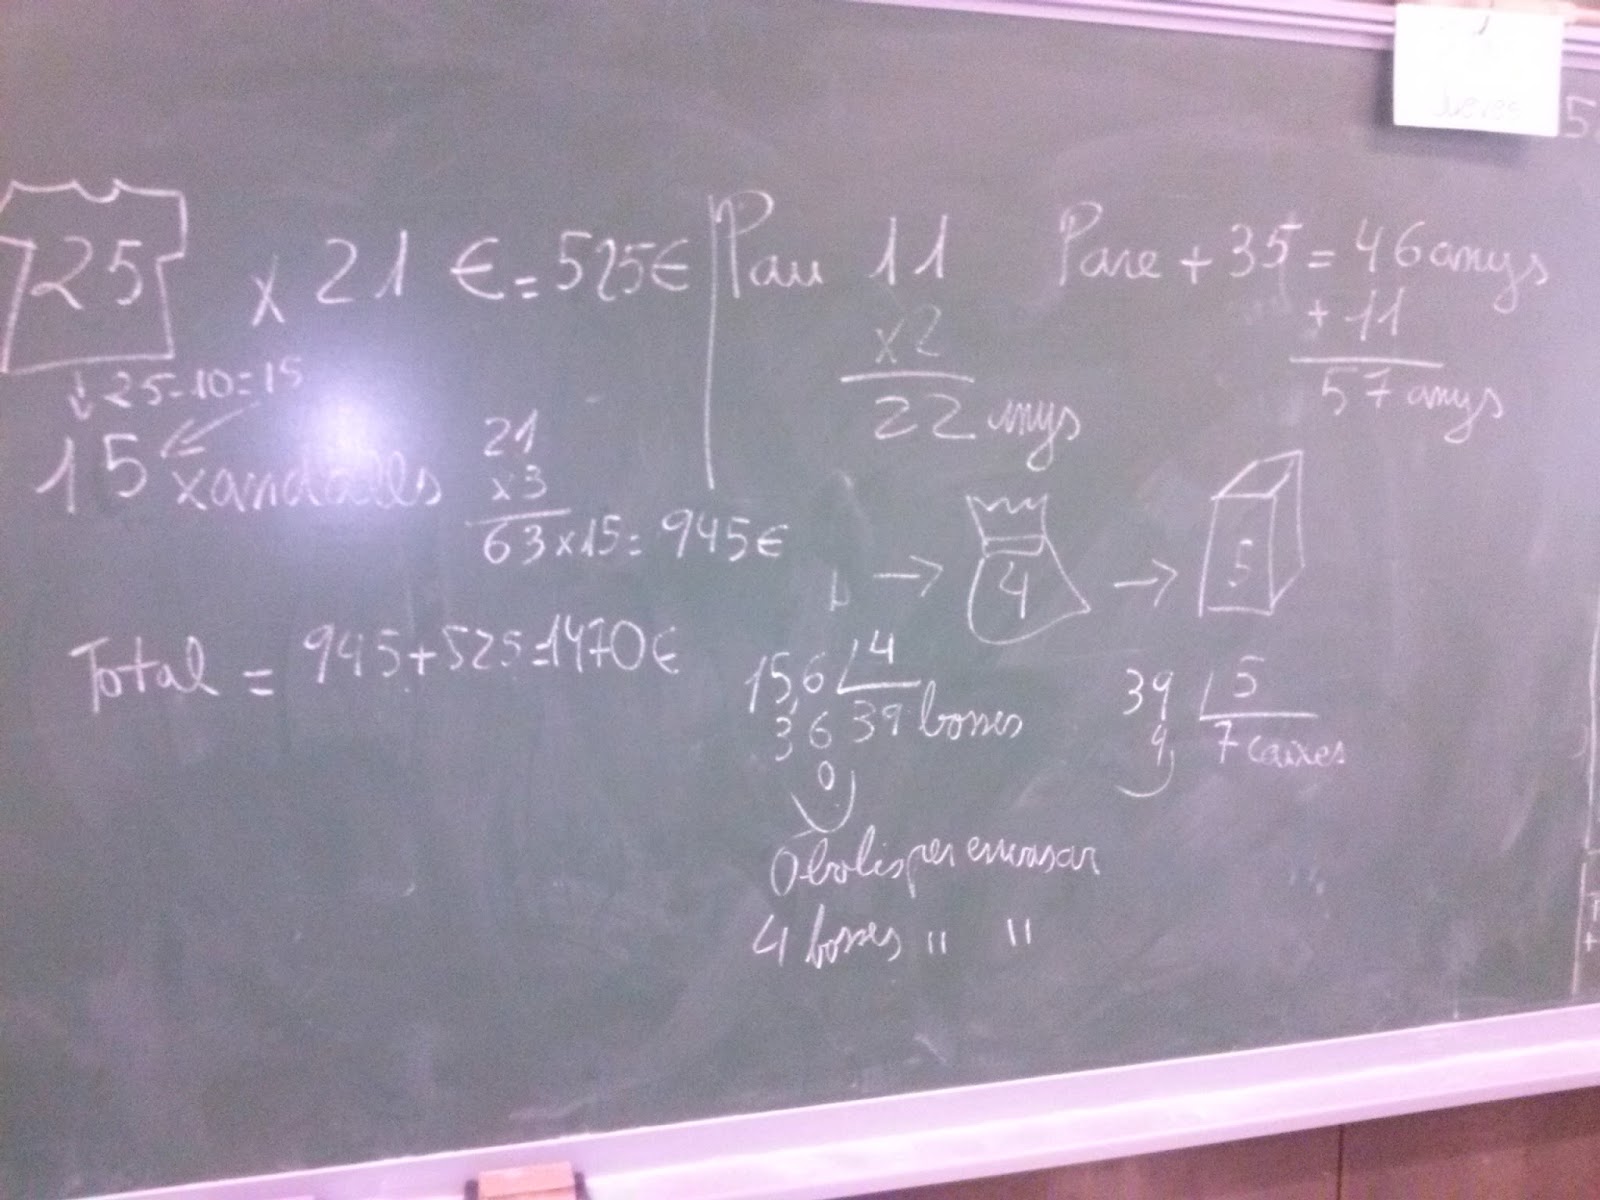 25 x 21 € = 525€
↓ 25-10=15
15 xandalls
21
x3
63x15= 945€
Total = 945+525=1470€
Pau 11
x2
22 anys
Pare + 35 = 46 anys
+ 11
57 anys
→ 4 → 5
15,6 4
3,6 39 bosses
0
39 5
4 7 caixes
0 bolis per envasar
4 bosses " "
Jueves
5